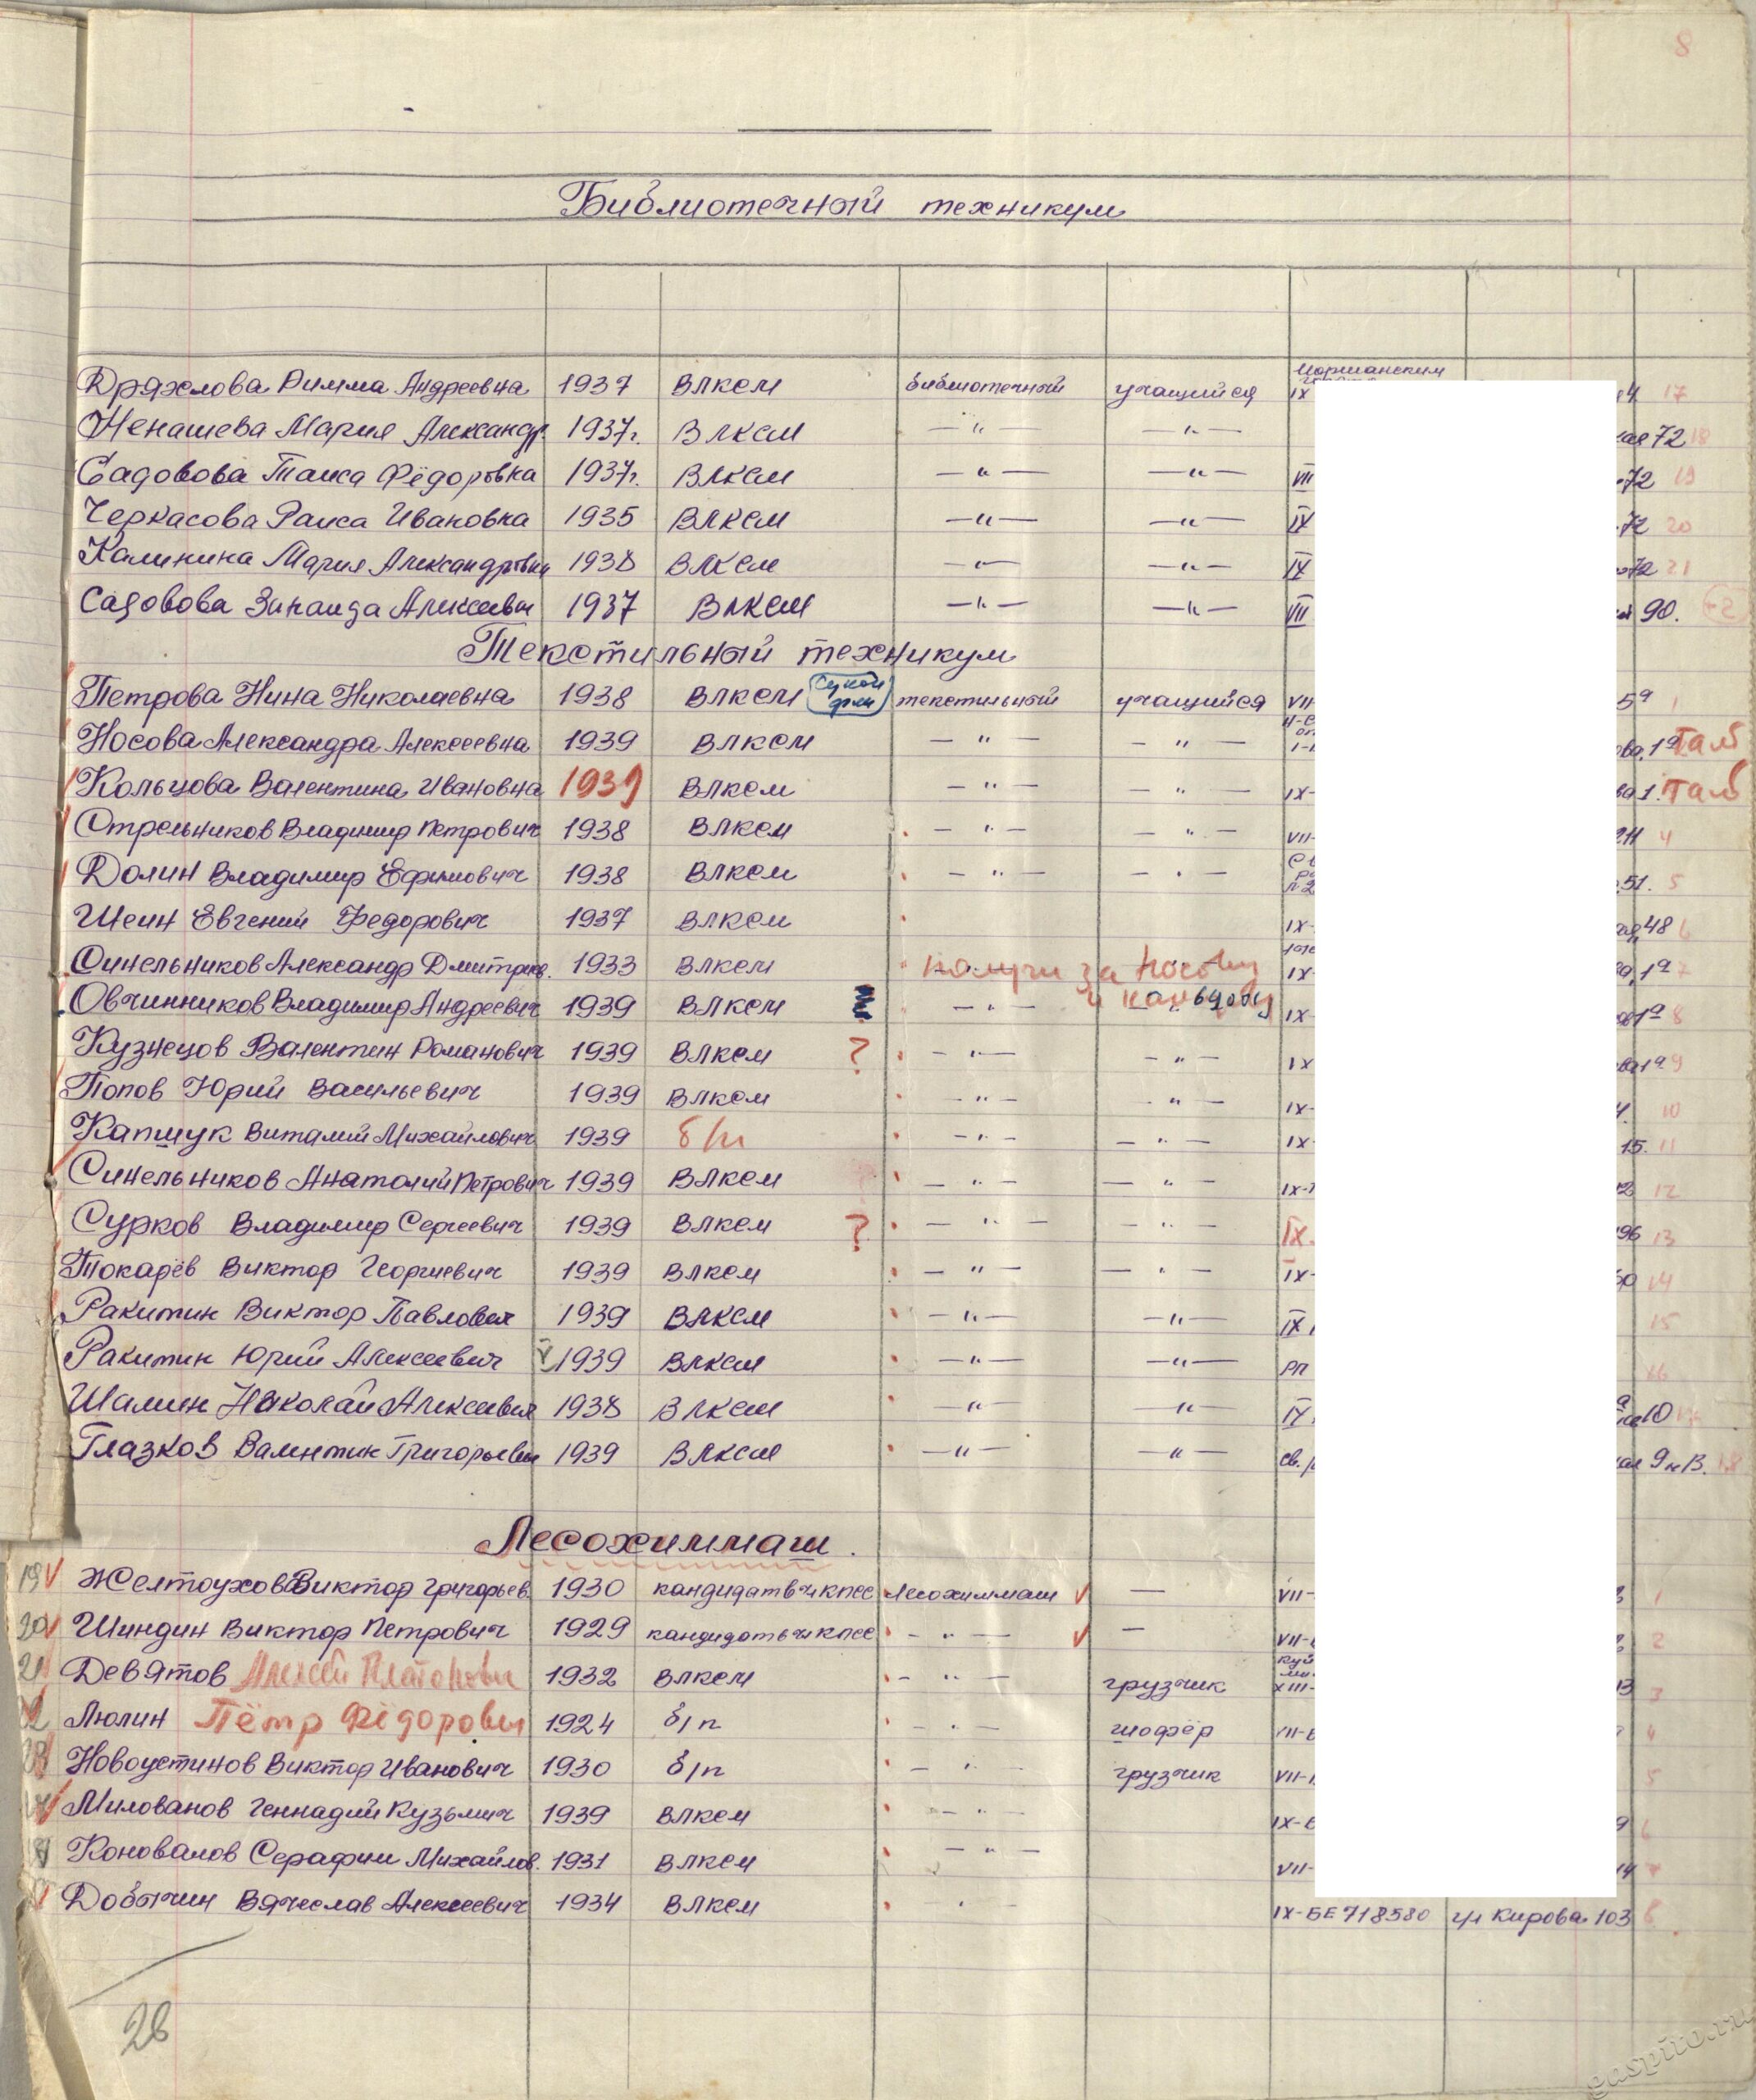 8
Библиотечный техникум
Моршанским
Дряхлова Римма Андреевна 1937 ВЛКСМ библиотечный учащийся IX 4 17
Ненашева Мария Александр. 1937г. ВЛКСМ —"— —"— ая 72 18
Садовова Таиса Фёдоровна 1937г. ВЛКСМ —"— —"— VII 72 19
Черкасова Раиса Ивановна 1935 ВЛКСМ —"— —"— IX 72 20
Калинина Мария Александровна 1938 ВЛКСМ —"— —"— IX 72 21
Садовова Зинаида Алексеевн 1937 ВЛКСМ —"— —"— VII 90.
Текстильный техникум
Петрова Нина Николаевна 1938 ВЛКСМ текстильный учащийся VII- 5а 1
Носова Александра Алексеевна 1939 ВЛКСМ —"— —"— ова, 1а Тамб
Кольцова Валентина Ивановна 1939 ВЛКСМ —"— —"— IX- ва 1. Тамб
Стрельников Владимир Петрович 1938 ВЛКСМ —"— —"— VII- 4
Долин Владимир Ефимович 1938 ВЛКСМ —"— —"— 51. 5
Шеин Евгений Федорович 1937 ВЛКСМ IX- 48 6
Синельников Александр Дмитриев. 1933 ВЛКСМ получи за Носову IX- 1а 7
Овчинников Владимир Андреевич 1939 ВЛКСМ —"— и IX- 1а 8
Кузнецов Валентин Романович 1939 ВЛКСМ ? —"— —"— IX ва 1а 9
Попов Юрий Васильевич 1939 ВЛКСМ —"— —"— IX- 10
Капшук Виталий Михайлович 1939 б/п —"— —"— IX- 15. 11
Синельников Анатолий Петрович 1939 ВЛКСМ —"— —"— IX- 12
Сурков Владимир Сергеевич 1939 ВЛКСМ ? —"— —"— IX. 96 13
Токарёв Виктор Георгиевич 1939 ВЛКСМ —"— —"— IX- 14
Ракитин Виктор Павлович 1939 ВЛКСМ —"— —"— IX 15
Ракитин Юрий Алексеевич V 1939 ВЛКСМ —"— —"— РП 16
Шалин Николай Алексеевич 1938 ВЛКСМ —"— —"— IX 10
Глазков Валентин Григорьевич 1939 ВЛКСМ —"— —"— св. ая 9 кв. 18
Лесохиммаш.
19 V Желтоухов Виктор Григорьев. 1930 кандидат в чл КПСС Лесохиммаш V — VII- 1
20 V Шиндин Виктор Петрович 1929 кандидат в чл КПСС —"— V — VII- 2
21 Девятов Алексей Платонович 1932 ВЛКСМ —"— грузчик XIII- 13 3
22 Люлин Пётр Фёдорович 1924 б/п —"— шофёр VII- 4
23 Новоустинов Виктор Иванович 1930 б/п —"— грузчик VII- 5
Милованов Геннадий Кузьмич 1939 ВЛКСМ —"— IX-Б 9 6
Коновалов Серафим Михайлов. 1931 ВЛКСМ —"— VII- 14 7
Добычин Вячеслав Алексеевич 1934 ВЛКСМ " IX-БЕ 718580 ул Кирова 103 8
26
gaspito.ru